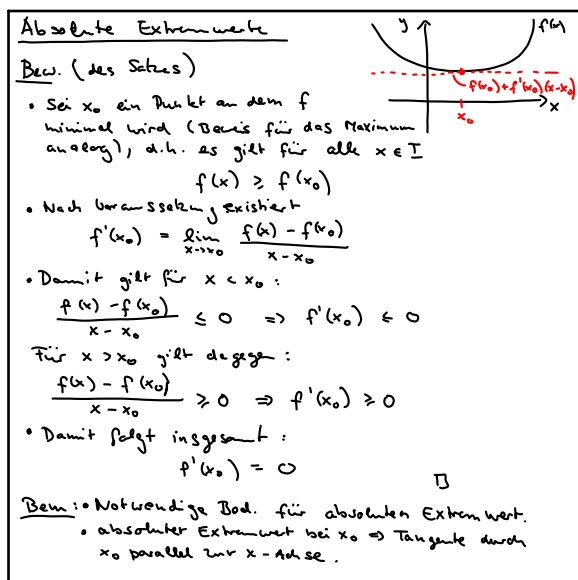 Absolute Extremwerte
y
f(x)
f(x₀)+f'(x₀)(x-x₀)
x
x₀
Bew. (des Satzes)
• Sei x₀ ein Punkt an dem f
minimal wird (Beweis für das Maximum
analog), d.h. es gilt für alle x ∈ I
f(x) ≥ f(x₀)
• Nach Voraussetzung existiert
f'(x₀) = lim_{x→x₀} (f(x) - f(x₀))/(x - x₀)
• Damit gilt für x < x₀:
(f(x) - f(x₀))/(x - x₀) ≤ 0 ⇒ f'(x₀) ≤ 0
Für x > x₀ gilt dagegen:
(f(x) - f(x₀))/(x - x₀) ≥ 0 ⇒ f'(x₀) ≥ 0
• Damit folgt insgesamt:
f'(x₀) = 0
□
Bem: • Notwendige Bed. für absoluten Extremwert.
• absoluter Extremwert bei x₀ ⇒ Tangente durch
x₀ parallel zur x-Achse.